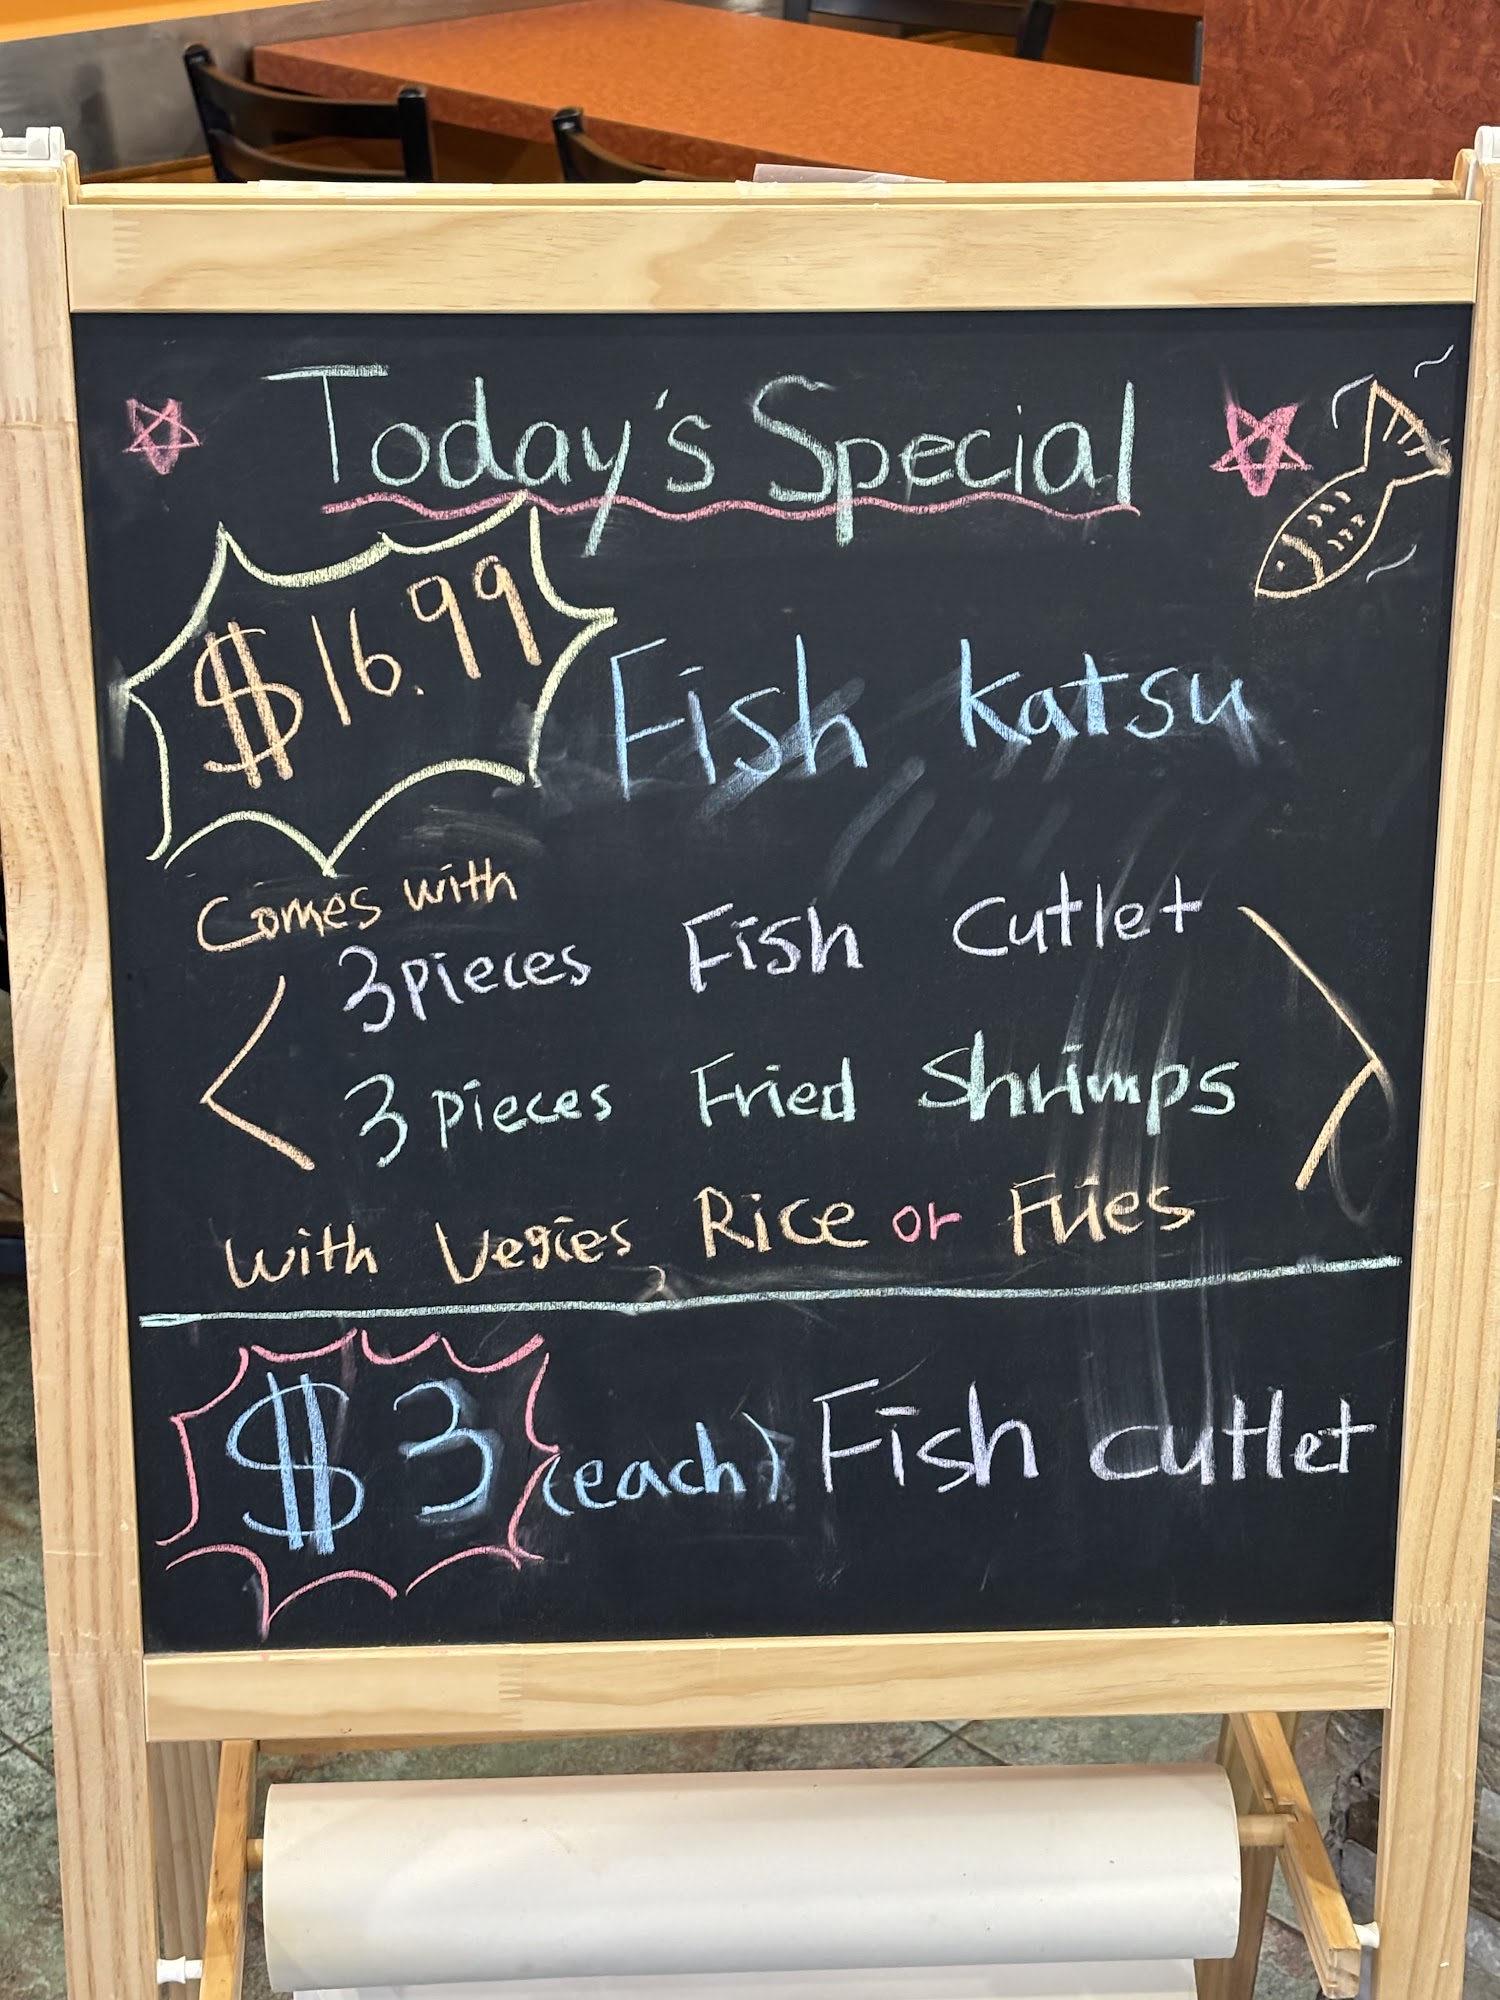 Today's Special
$16.99
Fish Katsu
Comes with
3 pieces Fish cutlet
3 pieces Fried Shrimps
with Vegies, Rice or Fries
$3 (each) Fish cutlet